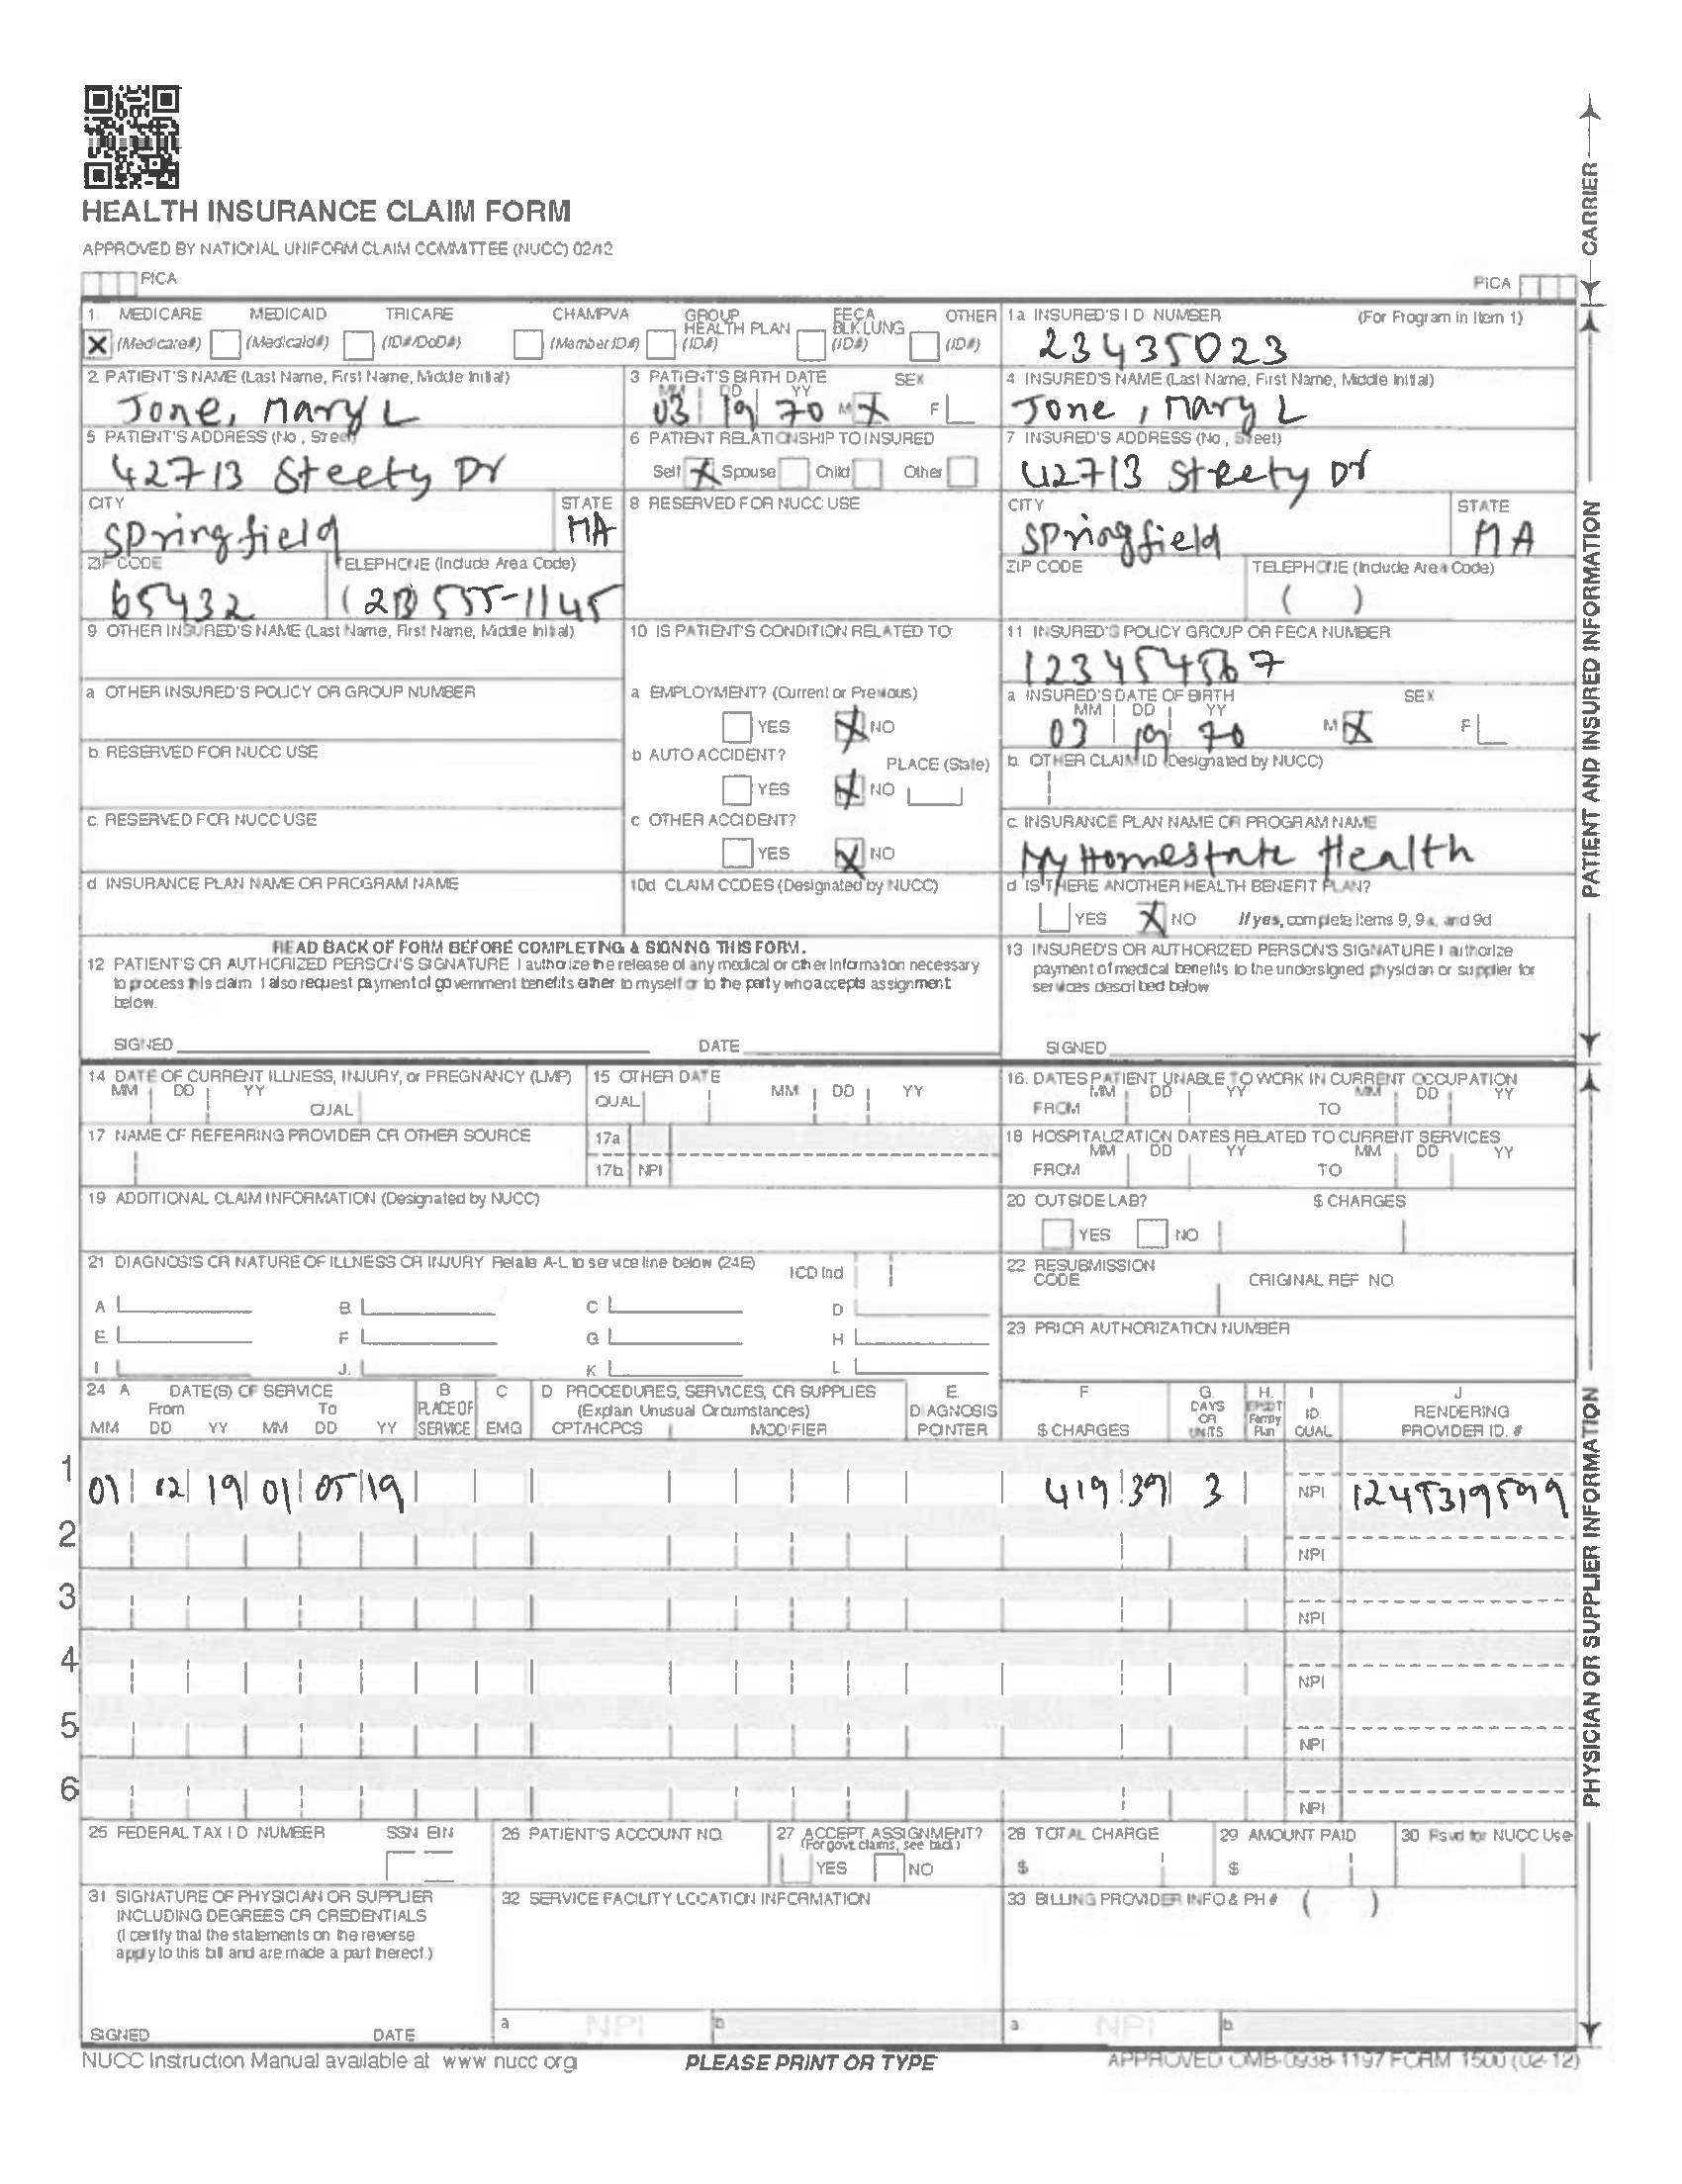 HEALTH INSURANCE CLAIM FORM
APPROVED BY NATIONAL UNIFORM CLAIM COMMITTEE (NUCC) 02/12
PICA
PICA
CARRIER
1. MEDICARE MEDICAID TRICARE CHAMPVA GROUP HEALTH PLAN FECA BLK LUNG OTHER
X (Medicare#) (Medicaid#) (ID#/DoD#) (Member ID#) (ID#) (ID#) (ID#)
1a INSURED'S I D NUMBER (For Program in Item 1)
23435023
2 PATIENT'S NAME (Last Name, First Name, Middle Initial)
Jone, Mary L
3 PATIENT'S BIRTH DATE SEX
MM DD YY
03 19 70 M X F
4 INSURED'S NAME (Last Name, First Name, Middle Initial)
Jone, Mary L
5 PATIENT'S ADDRESS (No, Street)
42713 Steety Dr
6 PATIENT RELATIONSHIP TO INSURED
Self X Spouse Child Other
7 INSURED'S ADDRESS (No, Street)
42713 Streety Dr
CITY STATE
Springfield MA
8 RESERVED FOR NUCC USE
CITY STATE
Springfield MA
ZIP CODE TELEPHONE (Include Area Code)
65432 (213) 555-1145
ZIP CODE TELEPHONE (Include Area Code)
( )
9 OTHER INSURED'S NAME (Last Name, First Name, Middle Initial)
10 IS PATIENT'S CONDITION RELATED TO:
11 INSURED'S POLICY GROUP OR FECA NUMBER
a OTHER INSURED'S POLICY OR GROUP NUMBER
a EMPLOYMENT? (Current or Previous)
YES X NO
a INSURED'S DATE OF BIRTH SEX
MM DD YY
03 19 70 M X F
b. RESERVED FOR NUCC USE
b AUTO ACCIDENT? PLACE (State)
YES X NO
b. OTHER CLAIM ID (Designated by NUCC)
c. RESERVED FOR NUCC USE
c OTHER ACCIDENT?
YES X NO
c. INSURANCE PLAN NAME OR PROGRAM NAME
My Homestate Health
d INSURANCE PLAN NAME OR PROGRAM NAME
10d CLAIM CODES (Designated by NUCC)
d IS THERE ANOTHER HEALTH BENEFIT PLAN?
YES X NO If yes, complete items 9, 9a, and 9d
READ BACK OF FORM BEFORE COMPLETING & SIGNING THIS FORM.
12 PATIENT'S OR AUTHORIZED PERSON'S SIGNATURE I authorize the release of any medical or other information necessary
to process this claim I also request payment of government benefits either to myself or to the party who accepts assignment
below.
SIGNED DATE
13 INSURED'S OR AUTHORIZED PERSON'S SIGNATURE I authorize
payment of medical benefits to the undersigned physician or supplier for
services described below
SIGNED
PATIENT AND INSURED INFORMATION
14 DATE OF CURRENT ILLNESS, INJURY, or PREGNANCY (LMP)
MM DD YY QUAL
15 OTHER DATE
QUAL MM DD YY
16. DATES PATIENT UNABLE TO WORK IN CURRENT OCCUPATION
MM DD YY MM DD YY
FROM TO
17 NAME OF REFERRING PROVIDER OR OTHER SOURCE
17a
17b NPI
18 HOSPITALIZATION DATES RELATED TO CURRENT SERVICES
MM DD YY MM DD YY
FROM TO
19 ADDITIONAL CLAIM INFORMATION (Designated by NUCC)
20 OUTSIDE LAB? $ CHARGES
YES NO
21 DIAGNOSIS OR NATURE OF ILLNESS OR INJURY Relate A-L to service line below (24E) ICD Ind
A B. C D
E. F G H
I J. K L
22 RESUBMISSION CODE ORIGINAL REF NO.
23 PRIOR AUTHORIZATION NUMBER
24 A DATE(S) OF SERVICE B C D PROCEDURES, SERVICES, OR SUPPLIES E. F G. H. I J
From To PLACE OF SERVICE EMG (Explain Unusual Circumstances) DIAGNOSIS POINTER $ CHARGES DAYS OR UNITS EPSDT Family Plan ID. QUAL RENDERING PROVIDER ID. #
MM DD YY MM DD YY CPT/HCPCS MODIFIER
1 01 02 19 01 05 19 419 39 3 NPI
2 NPI
3 NPI
4 NPI
5 NPI
6 NPI
25 FEDERAL TAX I D NUMBER SSN EIN
26 PATIENT'S ACCOUNT NO.
27 ACCEPT ASSIGNMENT?
(For govt. claims, see back)
YES NO
28 TOTAL CHARGE
$
29 AMOUNT PAID
$
30 Rsvd for NUCC Use
31 SIGNATURE OF PHYSICIAN OR SUPPLIER
INCLUDING DEGREES OR CREDENTIALS
(I certify that the statements on the reverse
apply to this bill and are made a part thereof.)
SIGNED DATE
32 SERVICE FACILITY LOCATION INFORMATION
a NPI b
33 BILLING PROVIDER INFO & PH # ( )
a. NPI b
PHYSICIAN OR SUPPLIER INFORMATION
NUCC Instruction Manual available at www nucc org
PLEASE PRINT OR TYPE
APPROVED OMB-0938-1197 FORM 1500 (02-12)